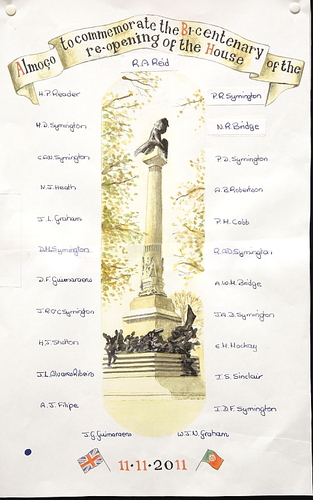 Almoço to commemorate the Bi-centenary of the
re-opening of the House
R.A Reid
H.P. Reader
P.R. Symington
M.D. Symington
N.R. Bridge
P.D. Symington
N.J. Heath
A.B. Robertson
J.L. Graham
P.M. Cobb
D.M. Symington
R.A.D. Symington
D.F. Guimaraens
A.W.M. Bridge
J.R.O'C Symington
J.A.D. Symington
H.J. Shotton
E.M. Mackay
J.L. Alvares Ribeiro
I.S. Sinclair
A.J. Filipe
I.D.F. Symington
J.G Guimaraens
W.J.N. Graham
11·11·2011